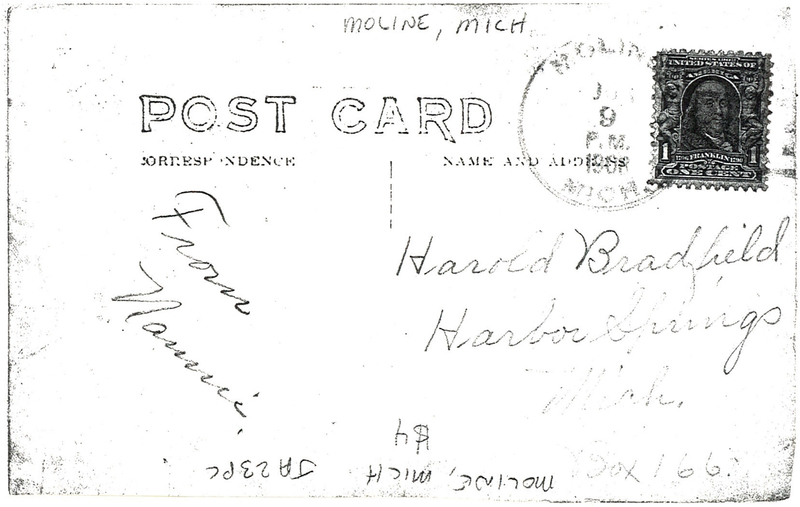 MOLINE, MICH
POST CARD
CORRESPONDENCE
NAME AND ADDRESS
MOLINE
9
P.M.
MICH.
SERIES 1902
UNITED STATES OF
AMERICA
1 FRANKLIN 1
POSTAGE
ONE CENT
From
Nannie.
Harold Bradfield
Harbor Springs
Mich.
Box 166.
$4
MOLINE, MICH JA23PC